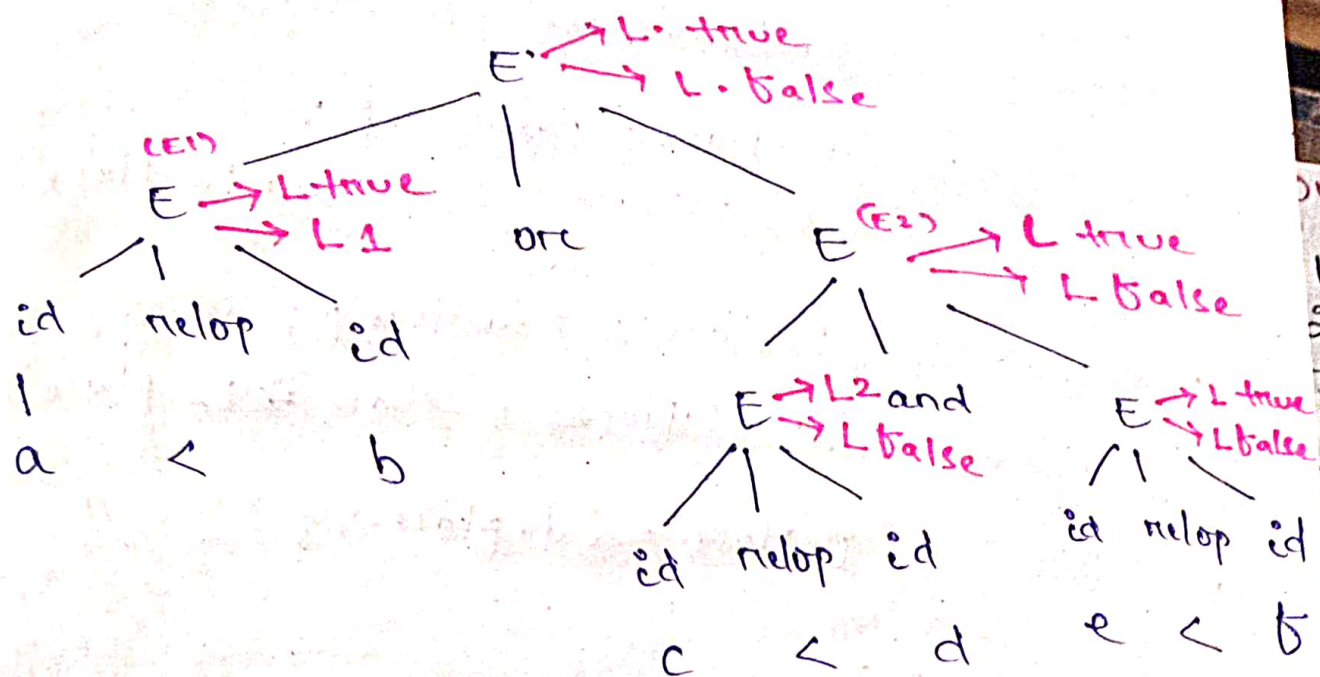 L. true
E
L. false
(E1)
E L true
L 1
or
E (E2) L true
L false
id relop id
E L2 and
L false
E L true
L false
a < b
id relop id
id relop id
c < d
e < f